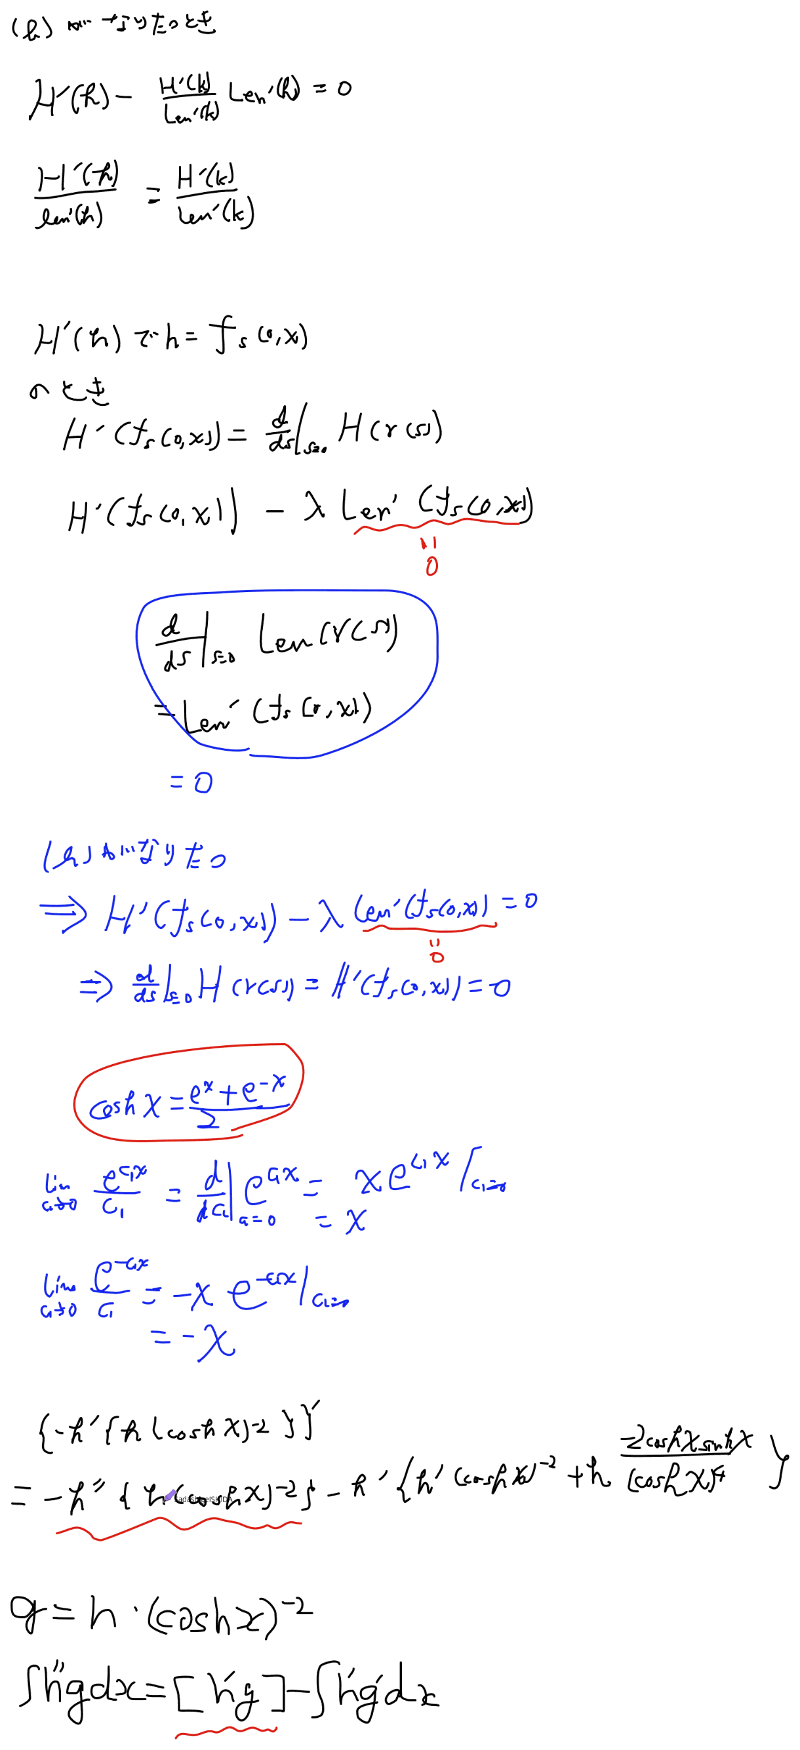 (h) がなりたつとき
H'(h) - H'(k)/Len'(k) Len'(h) = 0
H'(h)/len'(h) = H'(k)/Len'(k)
H'(h) で h = f_s(0,x)
のとき
H'(f_s(0,x)) = d/ds|_{s=0} H(r(s))
H'(f_s(0,x)) - λ Len'(f_s(0,x))
"
0
d/ds|_{s=0} Len(r(s))
= Len'(f_s(0,x))
= 0
(h) がなりたつ
⇒ H'(f_s(0,x)) - λ Len'(f_s(0,x)) = 0
"
0
⇒ d/ds|_{s=0} H(r(s)) = H'(f_s(0,x)) = 0
cosh x = (e^x + e^{-x})/2
lim_{c_1→0} e^{c_1x}/c_1 = d/dc_1|_{c_1=0} e^{c_1x} = x e^{c_1x}|_{c_1=0}
= x
lim_{c_1→0} e^{-c_1x}/c_1 = -x e^{-c_1x}|_{c_1=0}
= -x
{-h'{h(cosh x)^{-2}}}'
= -h''{h(cosh x)^{-2}} - h'{h'(cosh x)^{-2} + h (-2cosh x sinh x)/(cosh x)^4}
g = h·(cosh x)^{-2}
∫h''g dx = [h'g] - ∫h'g' dx